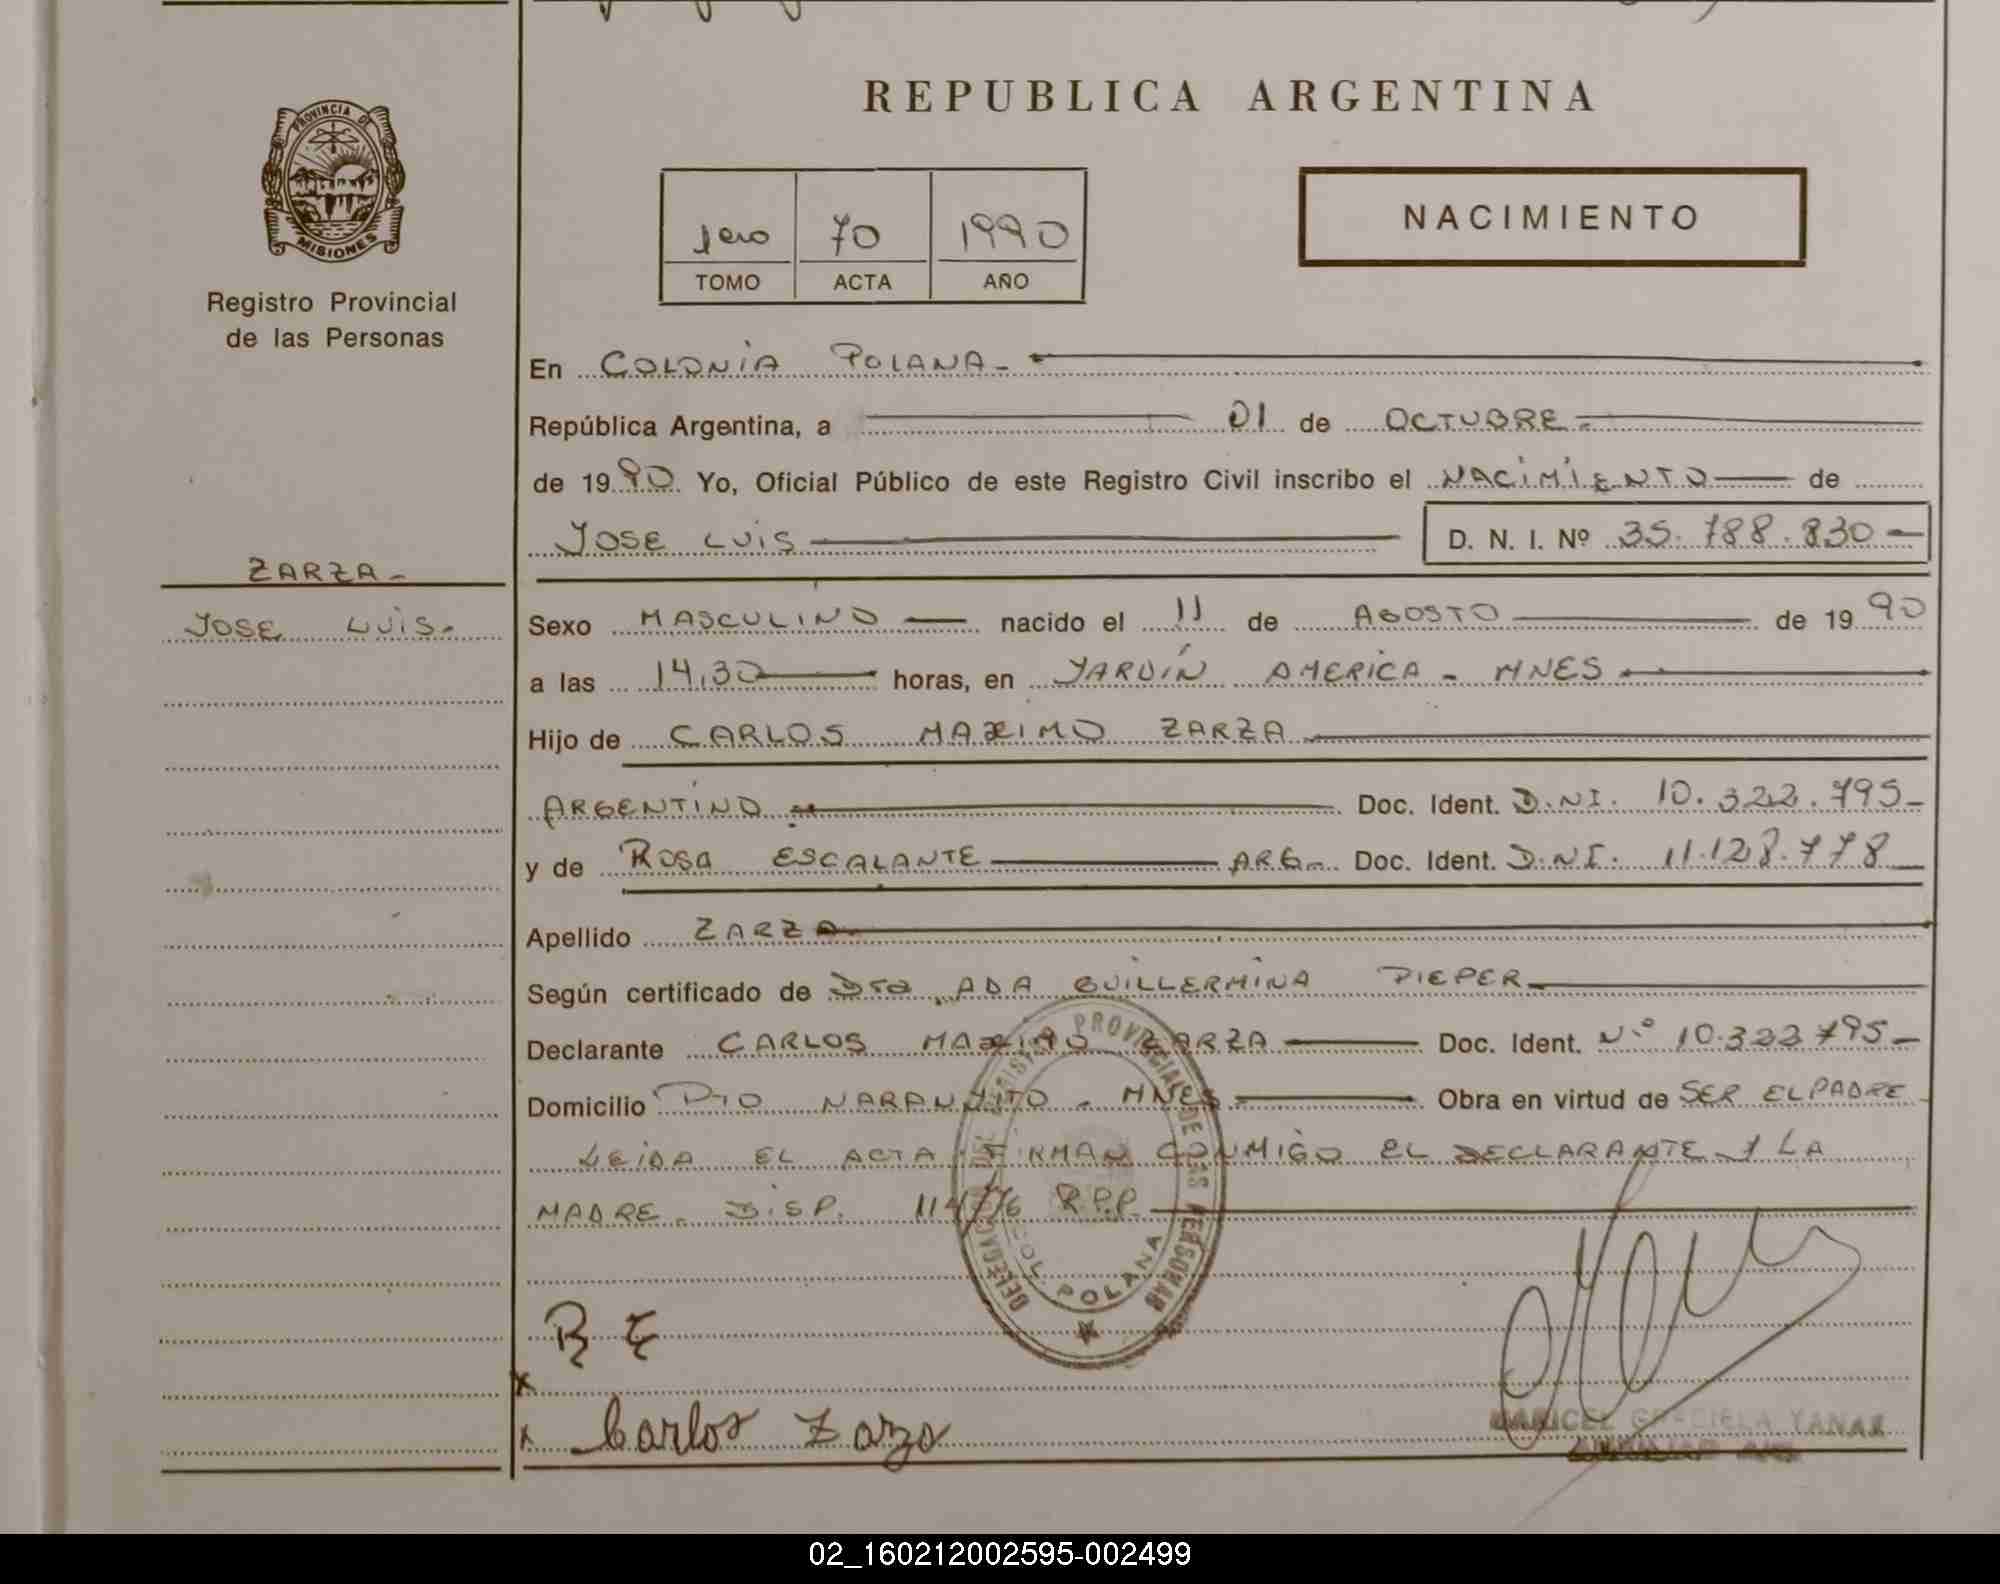 PROVINCIA DE
MISIONES
Registro Provincial
de las Personas
ZARZA -
JOSE LUIS -
REPUBLICA ARGENTINA
1ero 70 1990
TOMO ACTA AÑO
NACIMIENTO
En COLONIA POLANA -
República Argentina, a 01 de OCTUBRE -
de 1990 Yo, Oficial Público de este Registro Civil inscribo el NACIMIENTO de
JOSE LUIS D. N. I. Nº 35.788.830 -
Sexo MASCULINO nacido el 11 de AGOSTO de 1990
a las 14,30 horas, en JARDÍN AMERICA - MNES
Hijo de CARLOS MAXIMO ZARZA
ARGENTINO Doc. Ident. D.NI. 10.322.795 -
y de ROSA ESCALANTE ARG- Doc. Ident. D.NI. 11.128.778
Apellido ZARZA
Según certificado de Dra. ADA GUILLERMINA PIEPER
Declarante CARLOS MAXIMO ZARZA Doc. Ident. Nº 10.322.795 -
Domicilio PTO NARANJITO - MNES - Obra en virtud de SER EL PADRE
LEIDA EL ACTA FIRMAN CONMIGO EL DECLARANTE Y LA
MADRE. DISP. 114/76 R.P.P.
DELEGACION REGISTRO PROVINCIAL DE LAS PERSONAS
COL. POLANA
R E
x
x Carlos Zarza
MARICEL GRACIELA YANAX
02_160212002595-002499